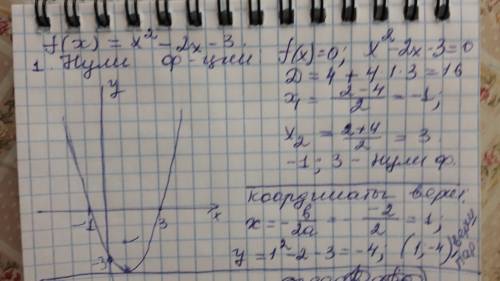 f(x) = x² - 2x - 3
1. Нули ф-ции
f(x)=0; x² - 2x - 3 = 0
D = 4 + 4·1·3 = 16
x₁ = (2-4)/2 = -1;
x₂ = (2+4)/2 = 3
-1; 3 - нули ф.
y
x
-1
3
-
-3
координаты верш.
x = -b/2a = - -2/2 = 1;
y = 1² - 2 - 3 = -4; (1, -4) верш
пар